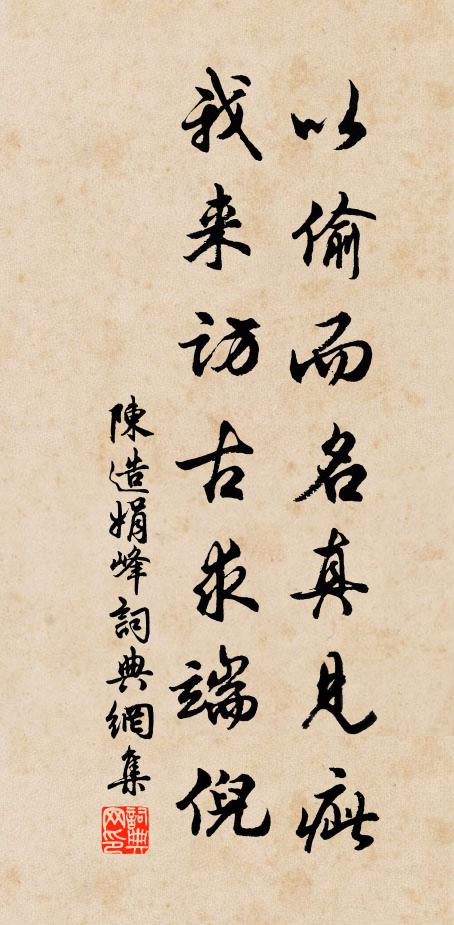 以偷而名真见疵
我来访古求端倪
陳造娟峰詞典網集
詞典网印